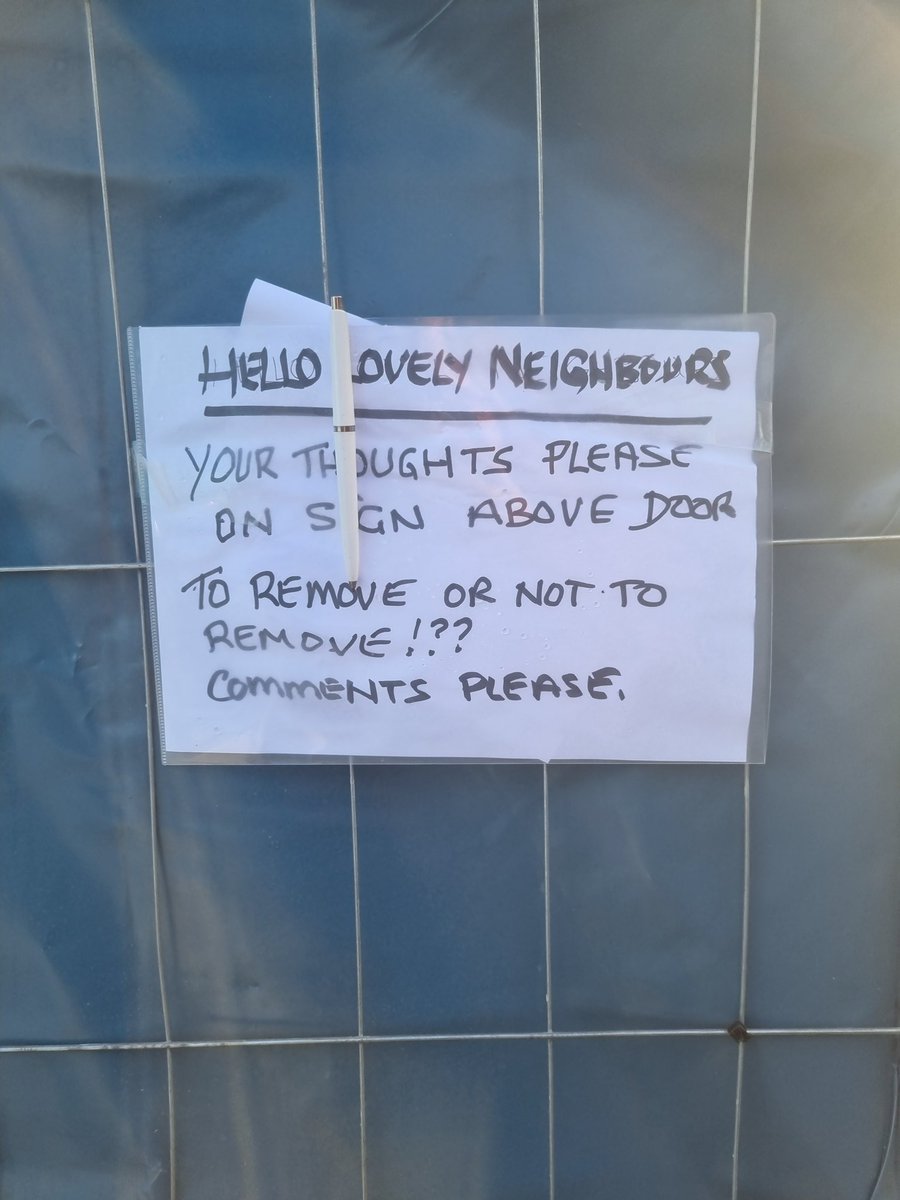 HELLO LOVELY NEIGHBOURS
YOUR THOUGHTS PLEASE
ON SIGN ABOVE DOOR
TO REMOVE OR NOT TO
REMOVE!??
COMMENTS PLEASE.